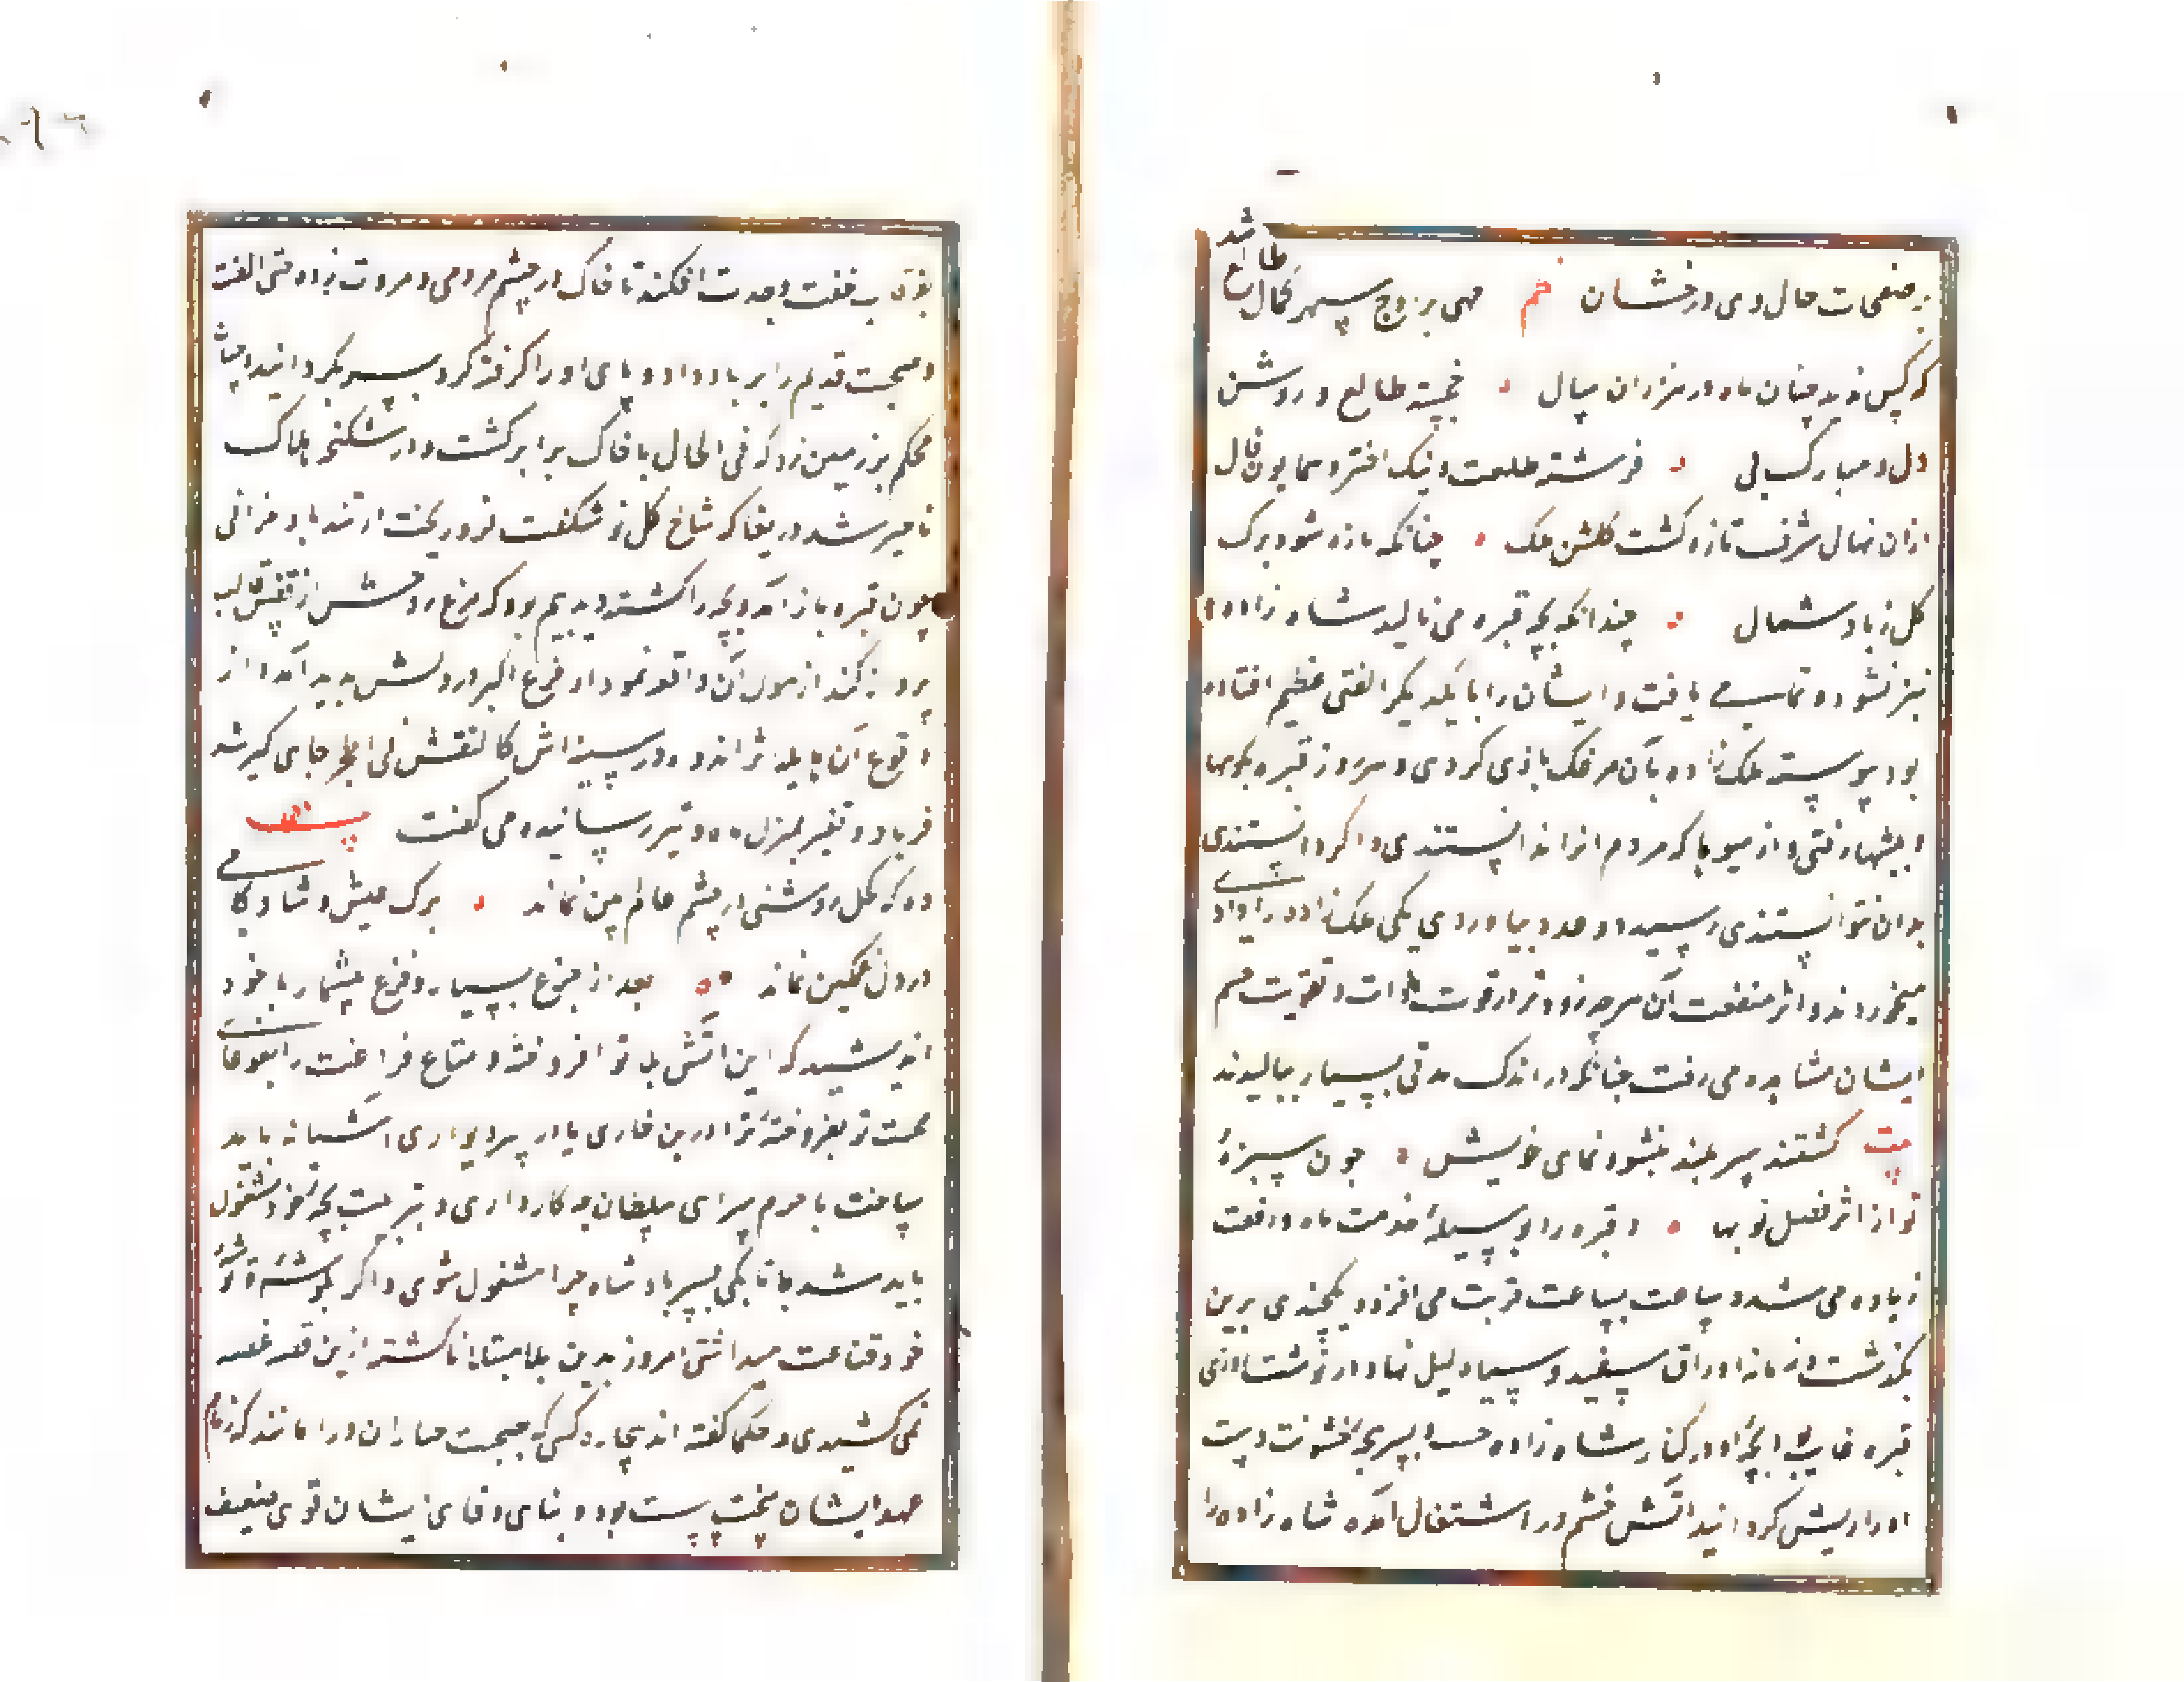 بر صفحات حال وی درخشان نظم مهی بر اوج سپهر کمال طالع شد
که کس ندید چنان ماه در هزاران سال خجسته طالع و روشن
دل و مبارک پی فرشته طلعت و نیک اختر و همایون فال
ازان نهال شرف تازه گشت گلشن ملک چنانکه تازه شود برگ
گل ز باد شمال چندانکه بچه قبره می بالید شاه زاده
نیز نشو و نمایی یافت و ایشان را با یکدیگر الفتی عظیم افتاده
بود پیوسته ملک زاده بآن مرغک بازی کردی و هر روز قبره بکوهها
و بیشها رفتی و از میوها که مردم آنرا ندانستندی و اگر دانستندی
بدان نتوانستندی رسید دو عدد بیاوردی یکی ملک زاده را دادی
میخوردند و اثر منفعت آن هر چه زودتر در قوت ذات و تقویت جسم
ایشان مشاهده می رفت چنانکه در اندک مدتی بسیار ببالیدند
بیت گشتند سر بلند بنشو و نمای خویش چون سبزهٔ
تر از اثر فصل نوبهار و قبره را بوسیلهٔ خدمت ماه و رفعت
زیاده می شد و ساعت بساعت قربت می افزود یکچندی برین
بگذشت و زمانه اوراق سفید و سیاه لیل و نهار در نوشت روزی
قبره غایب بود بچهٔ او در کنار شاه زاده جست و بسر پنجهٔ خشونت دست
او را ریش گردانید آتش خشم در اشتعال آمده شاه زاده را
بغرقاب خفت و حدت افکند تا خاک در چشم مردمی و مروت زده حق الفت
و صحبت قدیم را بر باد داد و پای او را گرفته گرد سر بگردانید و چنان
محکم بر زمین زد که فی الحال با خاک برابر گشت و در شکنجه هلاک
ناچیز شد دریغا که شاخ گل نو شکفت فرو ریخت از تند باد خزانی
چون قبره باز آمد و بچه را کشته دید بیم بود که مرغ روحش از قفس قالب
پرواز کند از هول آن واقعه نمودار فزع اکبر در دلش پدید آمد و از
وقوع آن هایله تیر اندوه در سینه اش کالنقش فی الحجر جای گیر شد
فریاد و نفیر بمنزل ماه و تیر رسانیده می گفت بیت
ده که کحل روشنی در چشم عالم بین نماند برگ عیش و شادکامی
در دل غمگین نماند بعد از جزع بسیار و فزع بیشمار با خود
اندیشید که این آتش بلا تو افروختهٔ و متاع فراغت را بغوغای
محنت تو بفروختهٔ ترا در بن خاری یا در سر دیواری آشیانه باید
ساخت با حرم سرای سلطان چه کار داری و بتربیت بچه خود مشغول
باید شد با تابکی پسر پادشاه چرا مشغول شوی و اگر بگوشهٔ و توشهٔ
خود قناعت میداشتی امروز بدین بلا مبتلا ناگشته ازین قصه غصه
نمی کشیدی و حکما گفته اند بیچاره کسی که بصحبت جباران درماند که زمام
عهد ایشان سخت سست بود و بنای وفای ایشان قوی ضعیف